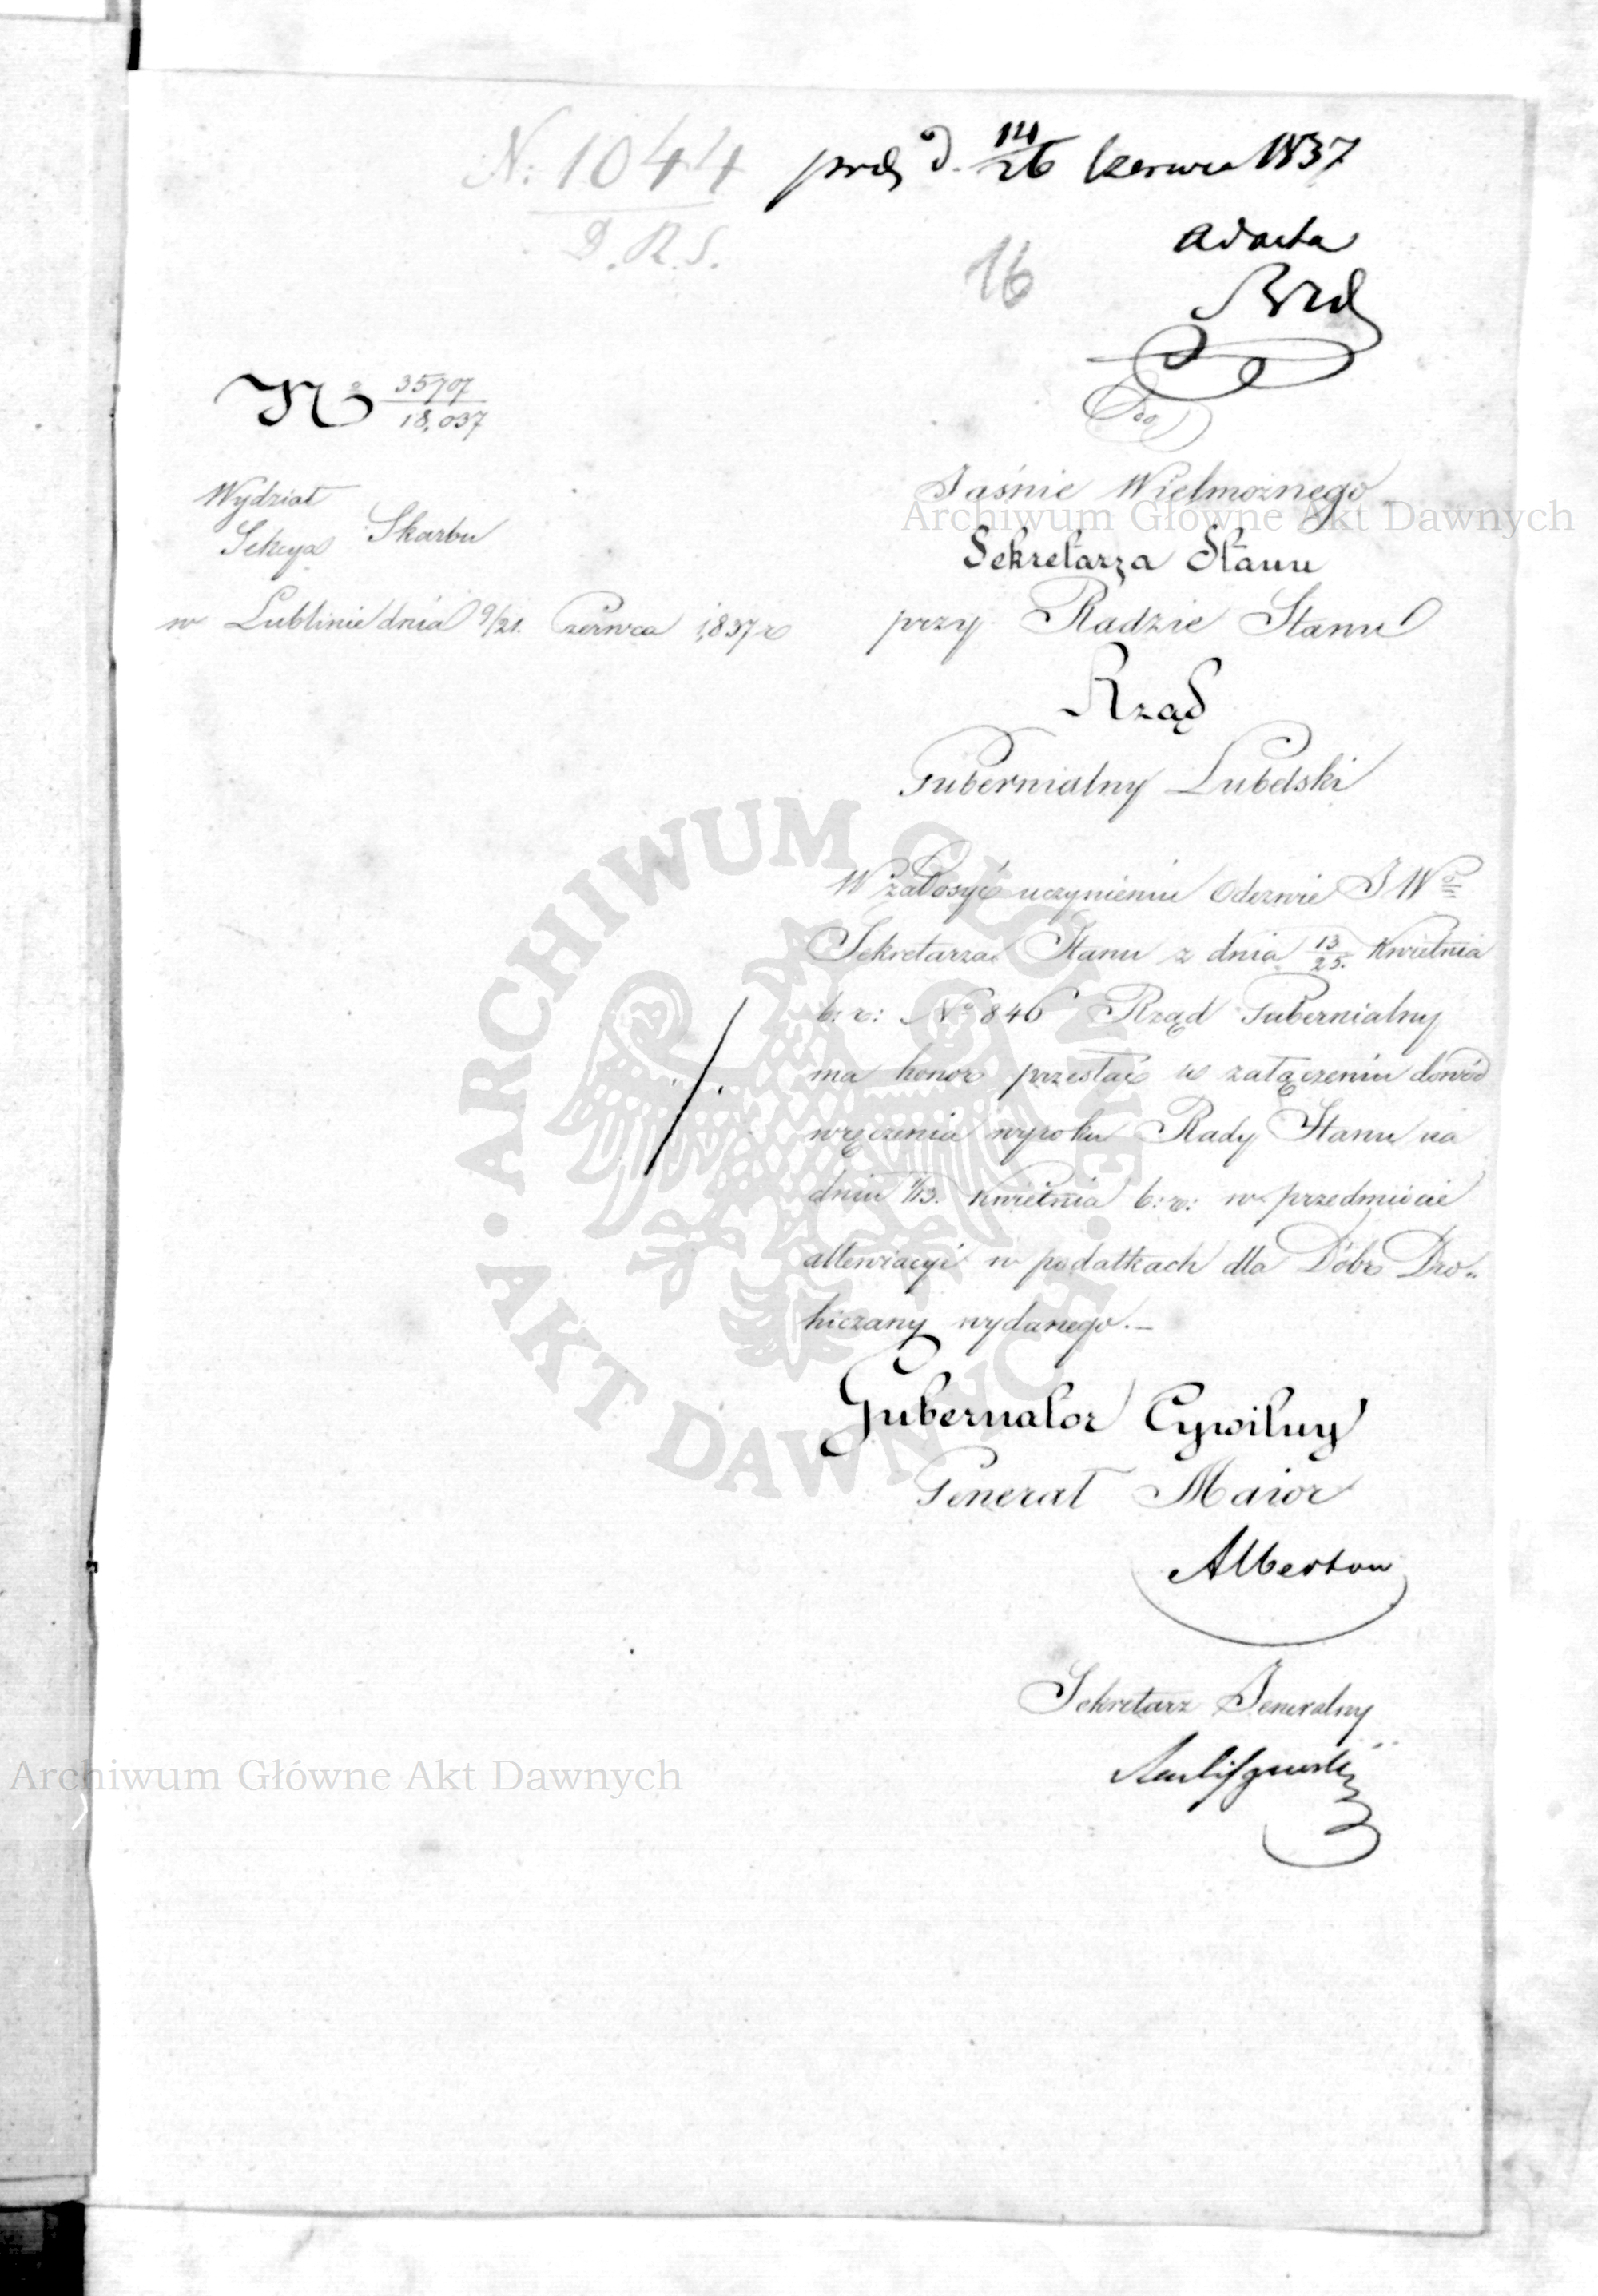 N: 1044
D.R.S.
d. 14/26 Czerwca 1837
ad acta
16
Nº 35707/18,037
Do
Wydział
Sekcya Skarbu
w Lublinie dnia 9/21. Czerwca 1837 r
Jaśnie Wielmożnego
Sekretarza Stanu
przy Radzie Stanu
Rząd
Gubernialny Lubelski
W zadosyć uczynieniu Odezwie JWº
Sekretarza Stanu z dnia 13/25. Kwietnia
b: r: Nº 846 Rząd Gubernialny
ma honor przesłać w załączeniu dowód
wręczenia wyroku Rady Stanu na
dniu 1/13. Kwietnia b: r: w przedmiocie
allewiacyi w podatkach dla Dóbr Dro„
hiczany wydanego.—
Gubernator Cywilny
Generał Maior
Albertow
Sekretarz Jeneralny
Archiwum Główne Akt Dawnych
Archiwum Główne Akt Dawnych
ARCHIWUM GŁÓWNE
AKT DAWNYCH